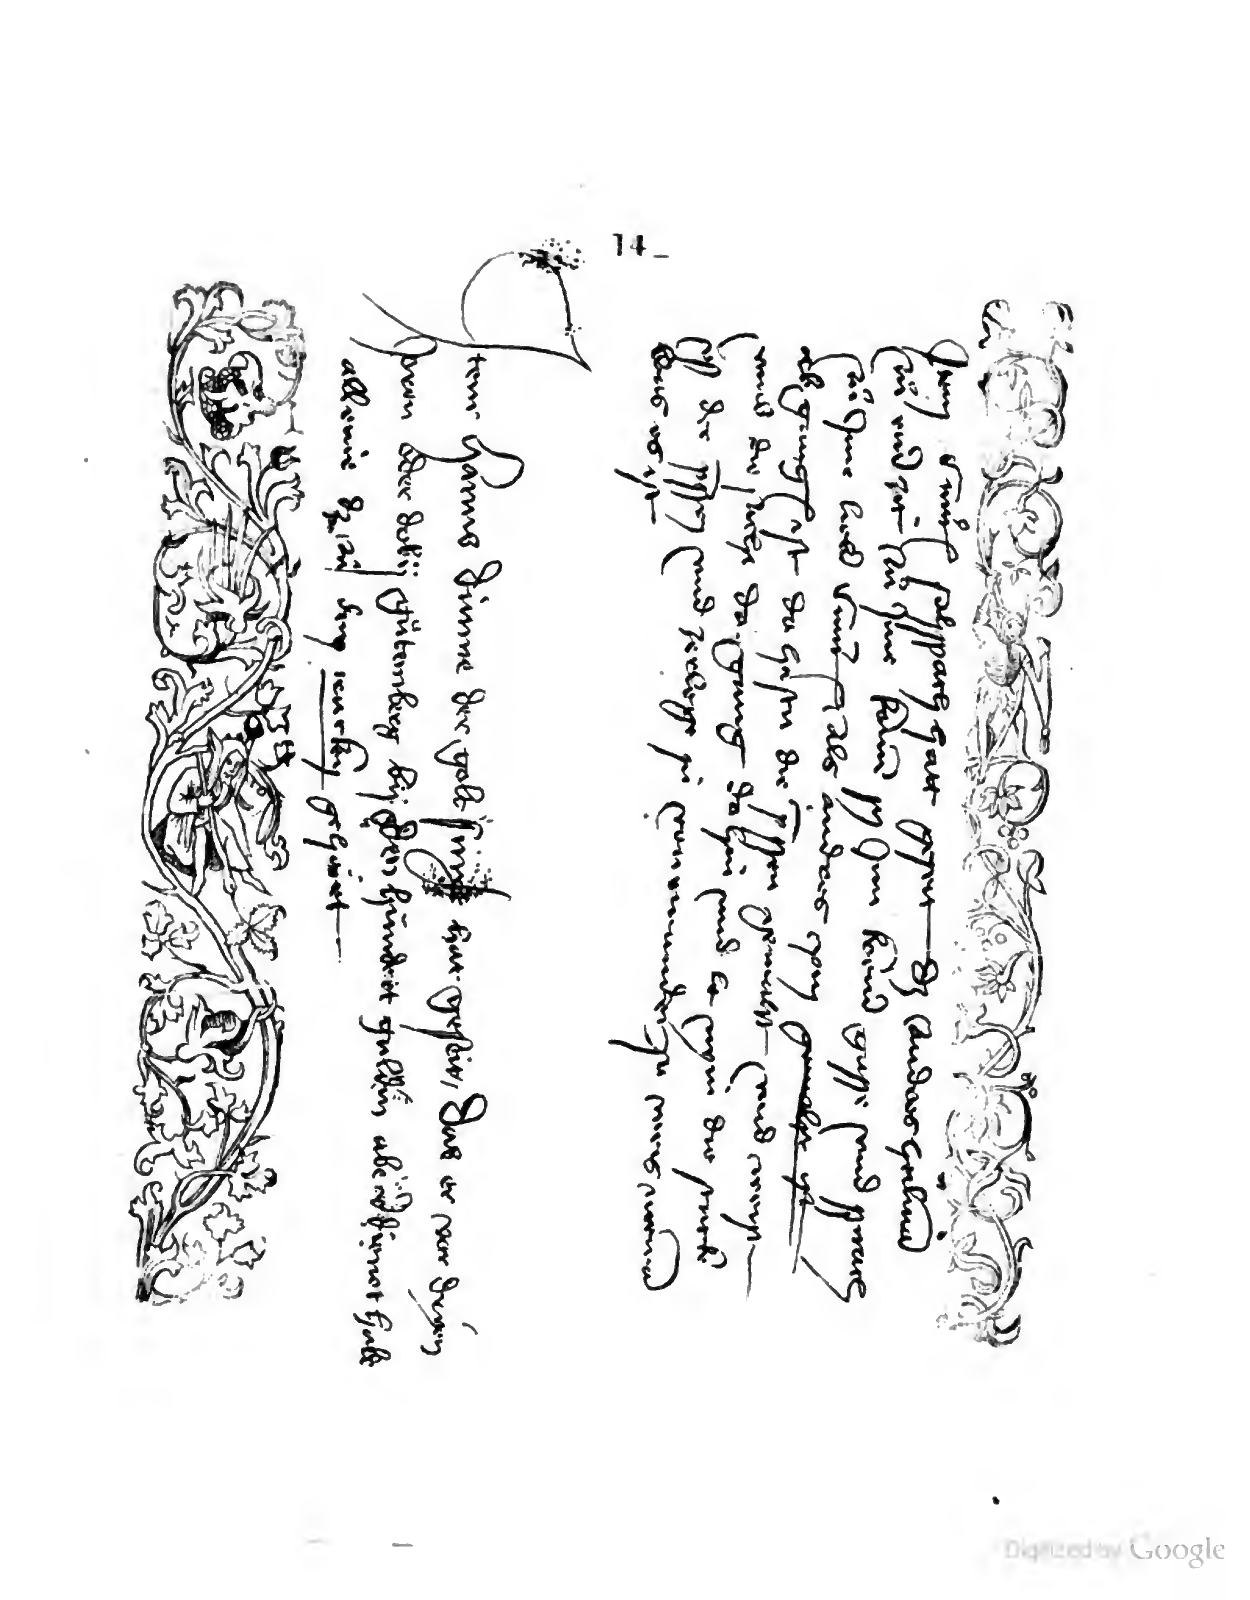 14
Item Cunrat Sahspach hatt geseit dz Andres Heilman
zü einer zit zü ime komen sy inn Kremer gasse und sprach
zu ime lieber Cunrat als Andres Dritzehen
abgangen ist da hastu die pressen gemaht und weist
umb die sache do gang dohin und nym die stücke
usz der pressen und zerlege sü von einander so weis nyemand
was es ist
tem Hanns Dünne der goltsmyt hat geseit, das er vor dryen
joren oder doby Gütemberg by den hundert guldin abe verdienet habe
alleine dz zu dem trucken gehöret
Digitized by Google